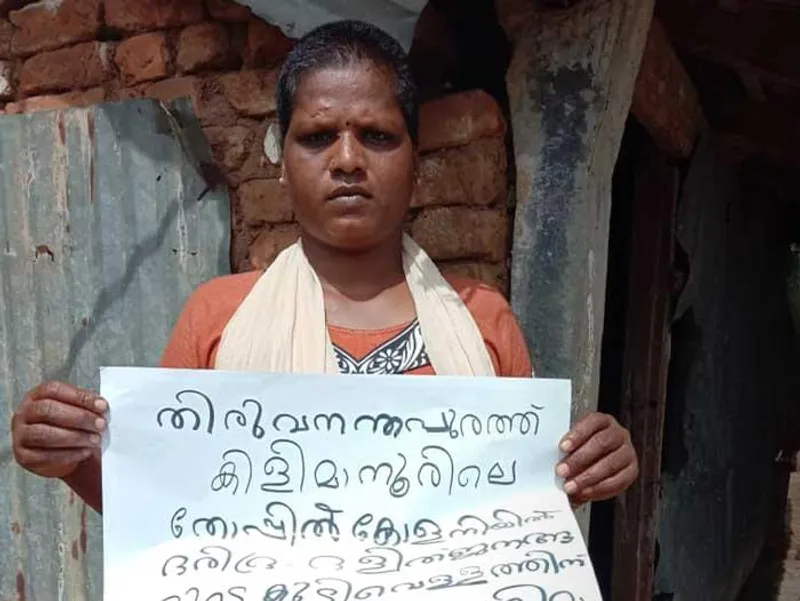 തിരുവനന്തപുരത്ത്
കിളിമാനൂരിലെ
തോപ്പിൽ കോളനിയിൽ
ദരിദ്ര ദളിത് ജനങ്ങ
കുടിവെള്ളത്തിന്